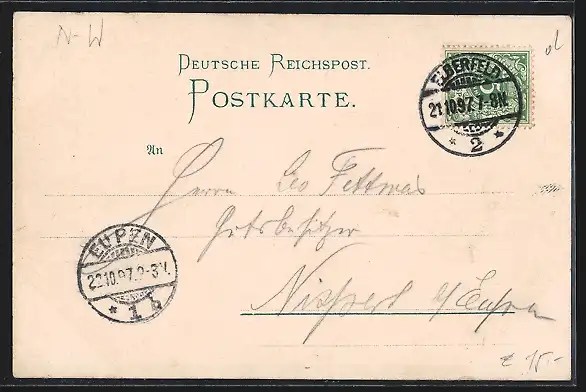 N-W
DEUTSCHE REICHSPOST.
POSTKARTE.
ELBERFELD
21.10.97.7-8N.
* 2 *
5
An
Herrn Leo Fettwas
Gutsbesitzer
Nispert b/Eupen
EUPEN
22.10.97.2-3V.
* 1 b
€ 15.-